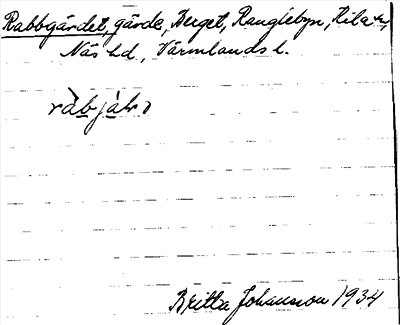 Rabbgärdet, gärde, Berget, Ranglebyn, Kila sn,
Näs hd., Värmlands l.
ràbjálər
Britta Johansson 1934